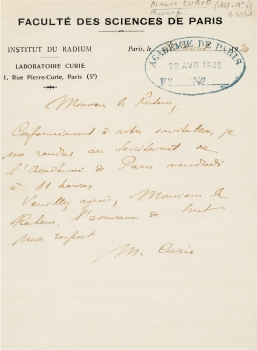 Marie CURIE (1867-1934)
FACULTÉ DES SCIENCES DE PARIS
INSTITUT DU RADIUM
LABORATOIRE CURIE
1, Rue Pierre-Curie, Paris (5e)
Paris, le
ACADÉMIE DE PARIS
22 AVR 1920
No No
Monsieur le Recteur,
Conformément à votre invitation, je
me rendrai au Secrétariat de
l'Académie de Paris vendredi
à 11 heures
Veuillez agréer, Monsieur le
Recteur, l'assurance de tout
mon respect
M. Curie